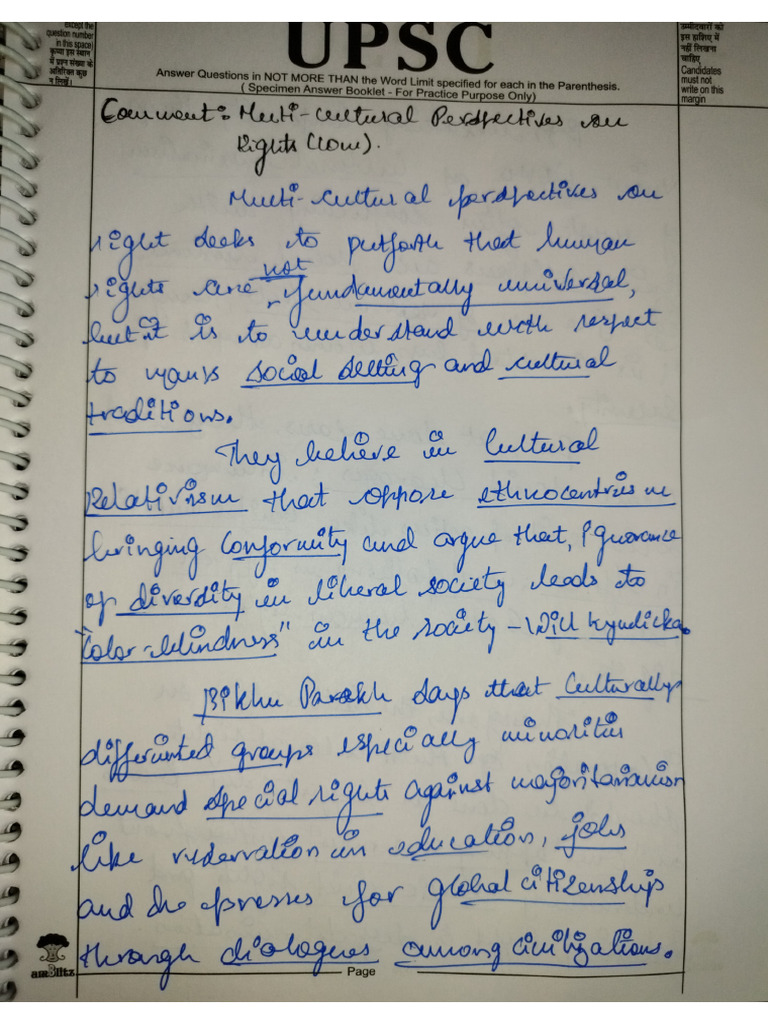 except the
question number
in this space)
कृपया इस स्थान
में प्रश्न संख्या के
अतिरिक्त कुछ
न लिखें।
UPSC
Answer Questions in NOT MORE THAN the Word Limit specified for each in the Parenthesis.
( Specimen Answer Booklet - For Practice Purpose Only)
उम्मीदवारों को
इस हाशिए में
नहीं लिखना
चाहिए
Candidates
must not
write on this
margin
Comment: Multi-cultural Perspectives on
Rights (10m).
Multi-cultural perspectives on
right seeks to putforth that human
rights are not fundamentally universal,
but it is to understand with respect
to various social setting and cultural
traditions.
They believe in Cultural
Relativism that oppose ethnocentrism
bringing conformity and argue that, Ignorance
of diversity in liberal society leads to
"Color-blindness" in the society - Will kymlicka.
Bikhu Parekh says that Culturally
differiented groups especially minorities
demand special rights against majoritarianism
like reservation in education, jobs
and he presses for global citizenship
through dialogues among civilizations.
am3litz
Page